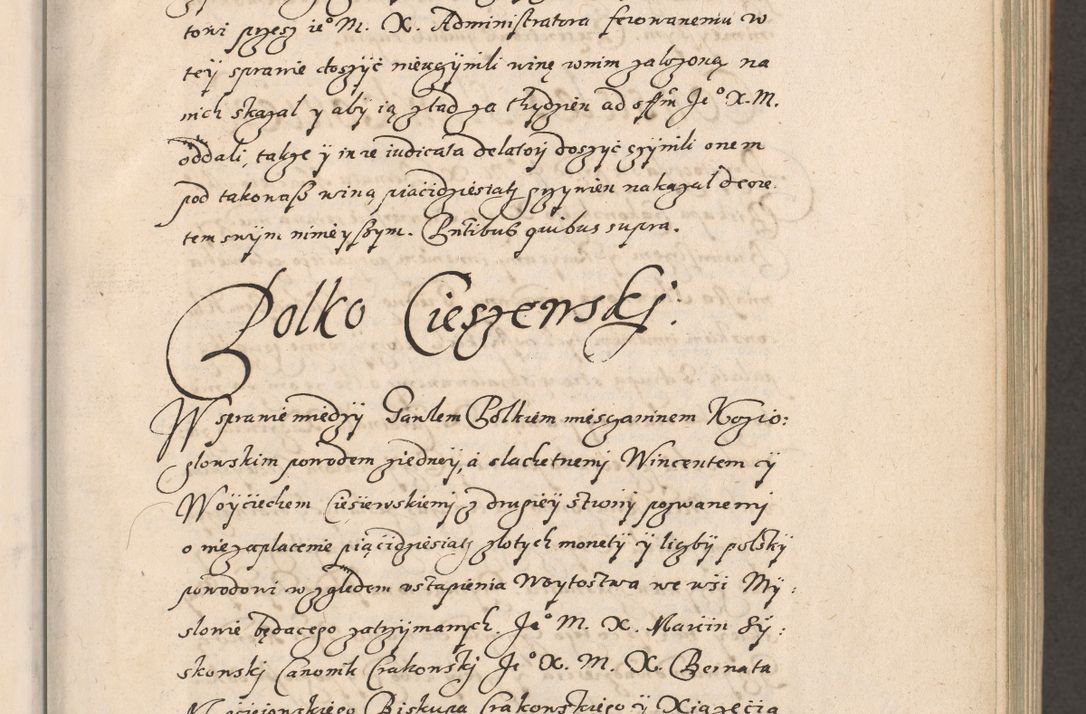 towi przesz ie° M. X. Administratora ferowanemu w
tey sprawie doszyć nieuczynili winę wnim założoną na
nich skazał y aby ią ztąd za tydzien ad offm Je° X. M.
oddali, także y in re iudicata delatory doszyć czynili onem
pod takowąß winą piącidziesiąth grzywien nakazał decre-
tem swÿm nimeÿßym. Pntibus quibus supra.
Bolko Cieszewskj.
W sprawie miedzy Gawłem Bolkiem miesczaninem Kozio:
głowskim powodem ziedneÿ, a slachetnemj Wincentem ÿ
Woÿciechem Ciesiewskiemj z drugieÿ strony pozwanemj
o niezapłacenie piącidziesiąth złotych monety ÿ liczby polskÿ
powodowi względem vstąpienia Woytostwa we wsi My:
słowie będącego zatrzymanych. Je° M. X. Marcin Sy:
skowskj Canonik Crakowskj Je° X. M. X. Bernata
Macieiowskiego Biskupa Crakowskiego y Xiążęcia